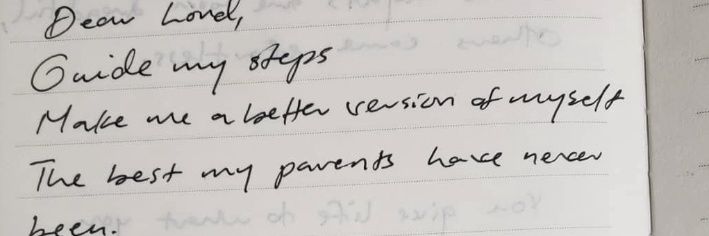 Dear Lord,
Guide my steps
Make me a better version of myself
The best my parents have never
been.